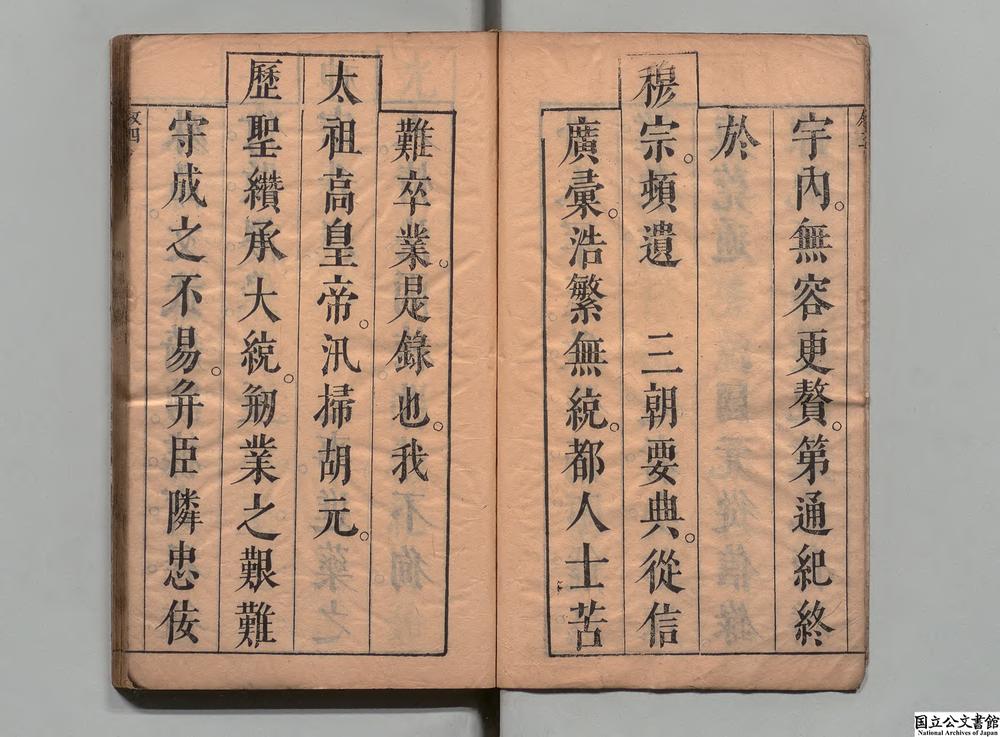 宇內。無容更贅。第通紀終
於
穆宗。頓遺　三朝要典。從信
廣彙。浩繁無統。都人士苦
難卒業。是錄也。我
太祖高皇帝。汛掃胡元。
歷聖纘承大統。剏業之艱難
守成之不易。并臣隣忠佞
国立公文書館
National Archives of Japan